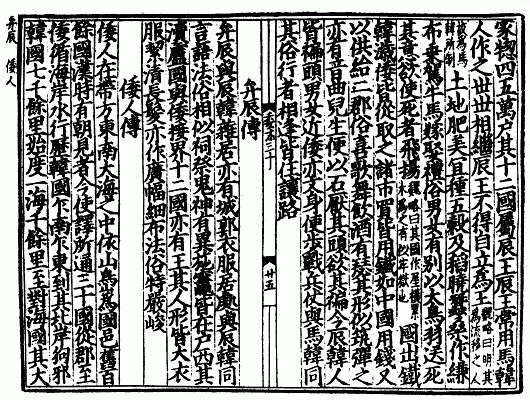 家揔四五萬戶其十二國屬辰王辰王常用馬韓
人作之世世相繼辰王不得自立爲王魏略曰明其爲流移之人
故爲馬韓所制土地肥美宜種五穀及稻曉蠶桑作縑
布乗駕牛馬嫁娶禮俗男女有別以大鳥羽送死
其意欲使死者飛揚魏略曰其國作屋橫累木爲之有似牢獄也國出鐵
韓濊倭皆從取之諸市買皆用鐵如中國用錢又
以供給二郡俗喜歌舞飲酒有瑟其形似筑彈之
亦有音曲兒生便以石厭其頭欲其褊今辰韓人
皆褊頭男女近倭亦文身便步戰兵仗與馬韓
同其俗行者相逢皆住讓路
廿五
弁辰傳
弁辰與辰韓雜居亦有城郭衣服居處與辰韓同
言語法俗相似祠祭鬼神有異施竈皆在戶西其
瀆盧國與倭接界十二國亦有王其人形皆大衣
服絜清長髮亦作廣幅細布法俗特嚴峻
倭人傳
倭人在帶方東南大海之中依山㠀爲國邑舊百
餘國漢時有朝見者今使譯所通三十國從郡至
倭循海岸水行歷韓國乍南乍東到其北岸狗邪
韓國七千餘里始度一海千餘里至對海國其大
弁辰 倭人